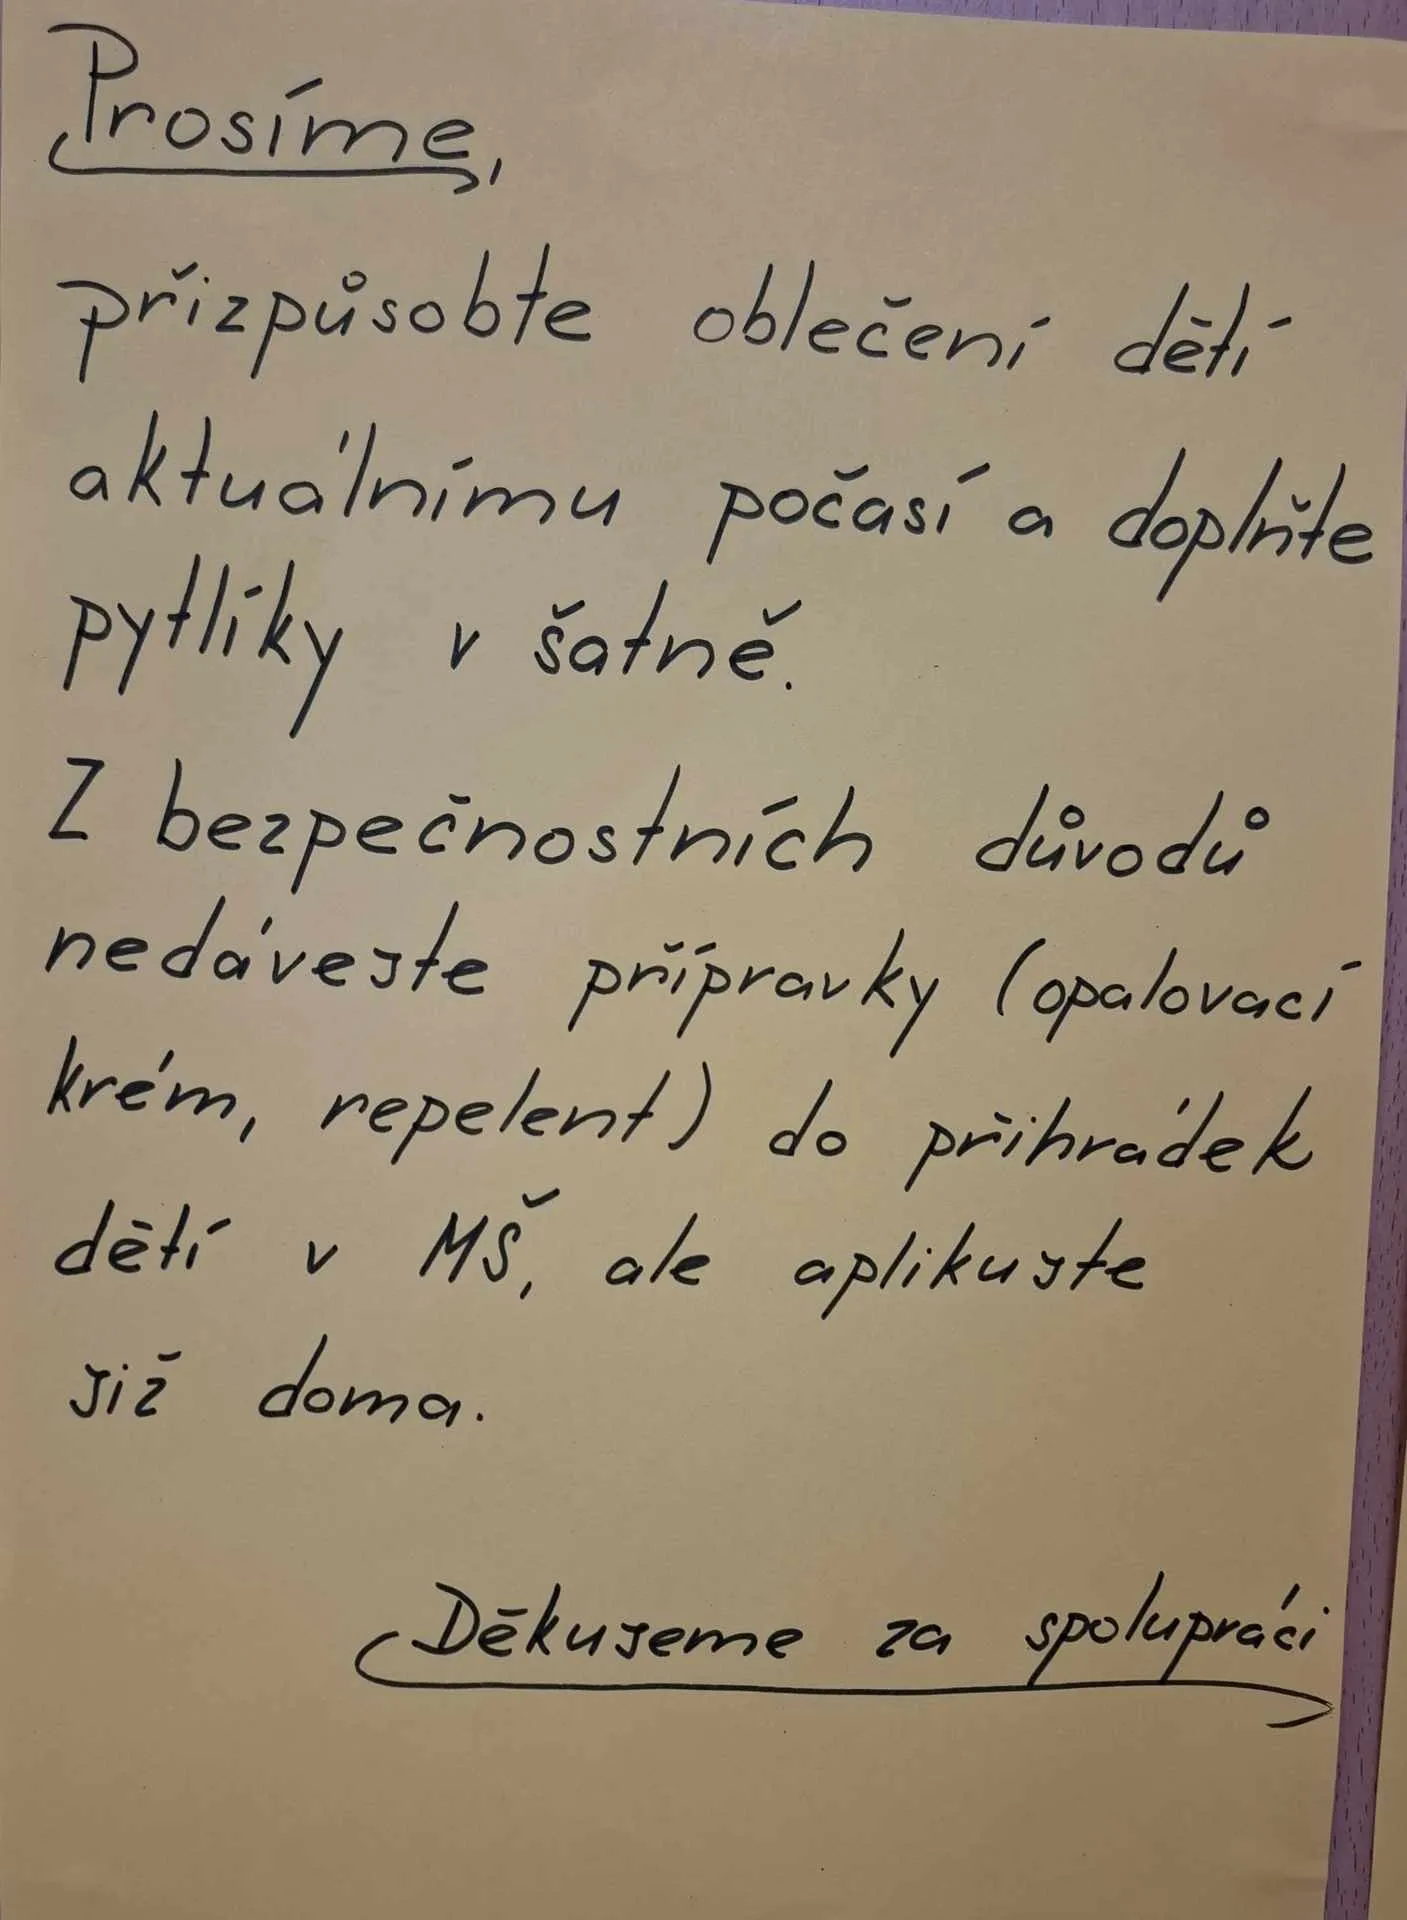 Prosíme,
přizpůsobte oblečení dětí
aktuálnímu počasí a doplňte
pytlíky v šatně.
Z bezpečnostních důvodů
nedávejte přípravky (opalovací
krém, repelent) do přihrádek
dětí v MŠ, ale aplikujte
již doma.
Děkujeme za spolupráci